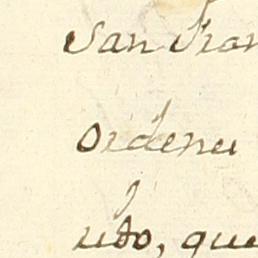 San Fran
ordenu
uto, que